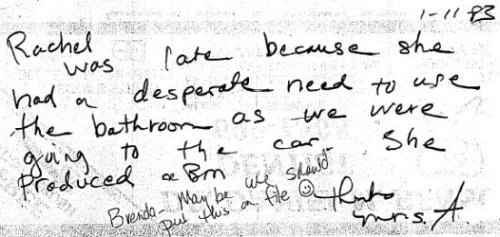 1-11-93
Rachel
was late because she
had a desperate need to use
the bathroom as we were
going to the car. She
Produced a BM
thanks
Mrs. A.
Brenda- Maybe we should
put this on file ☺